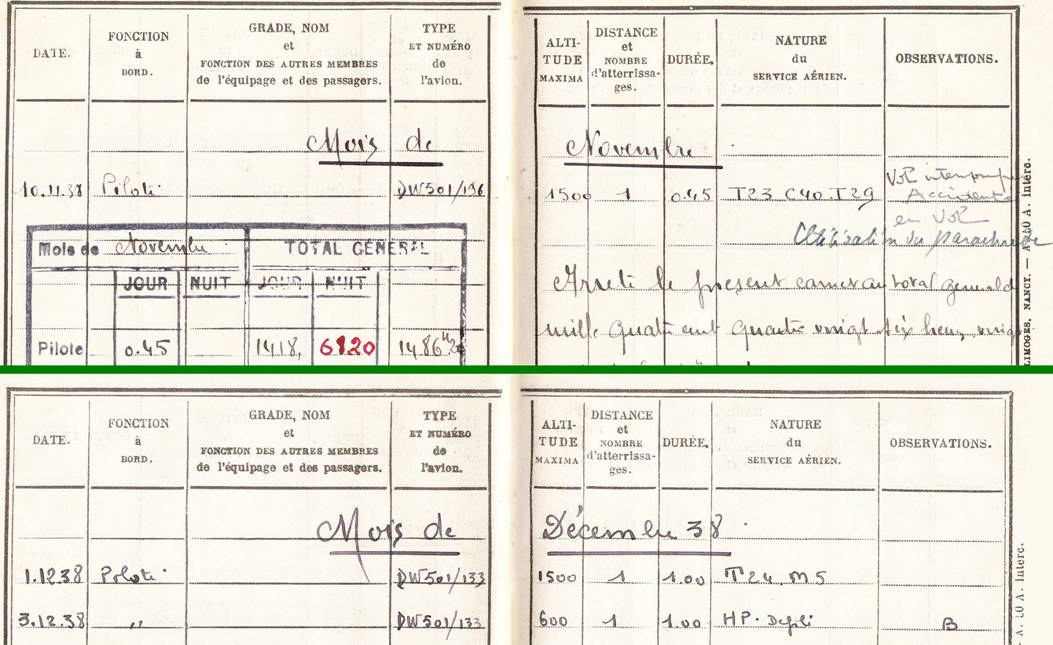 DATE. FONCTION à BORD. GRADE, NOM et FONCTION DES AUTRES MEMBRES de l'équipage et des passagers. TYPE ET NUMÉRO de l'avion. ALTI-TUDE MAXIMA DISTANCE et NOMBRE d'atterrissa-ges. DURÉE. NATURE du SERVICE AÉRIEN. OBSERVATIONS.
Mois de Novembre
10.11.38 Pilote DW501/136 1500 1 0.45 T23 C40 T29 Vol interrompu
Accident
en Vol
Utilisation du parachute
Mois de Novembre TOTAL GÉNÉRAL
JOUR NUIT JOUR NUIT
Pilote 0.45 1418, 68.20 1486
Arrêté le présent carnet au total général
mille quatre cent quatre vingt six heures vingt
LIMOGES, NANCY. — A. 10 A. Interc.
DATE. FONCTION à BORD. GRADE, NOM et FONCTION DES AUTRES MEMBRES de l'équipage et des passagers. TYPE ET NUMÉRO de l'avion. ALTI-TUDE MAXIMA DISTANCE et NOMBRE d'atterrissa-ges. DURÉE. NATURE du SERVICE AÉRIEN. OBSERVATIONS.
Mois de Décembre 38
1.12.38 Pilote DW501/133 1500 1 1.00 T24 M5
3.12.38 " DW501/133 600 1 1.00 HP. B
A. 10 A. Interc.